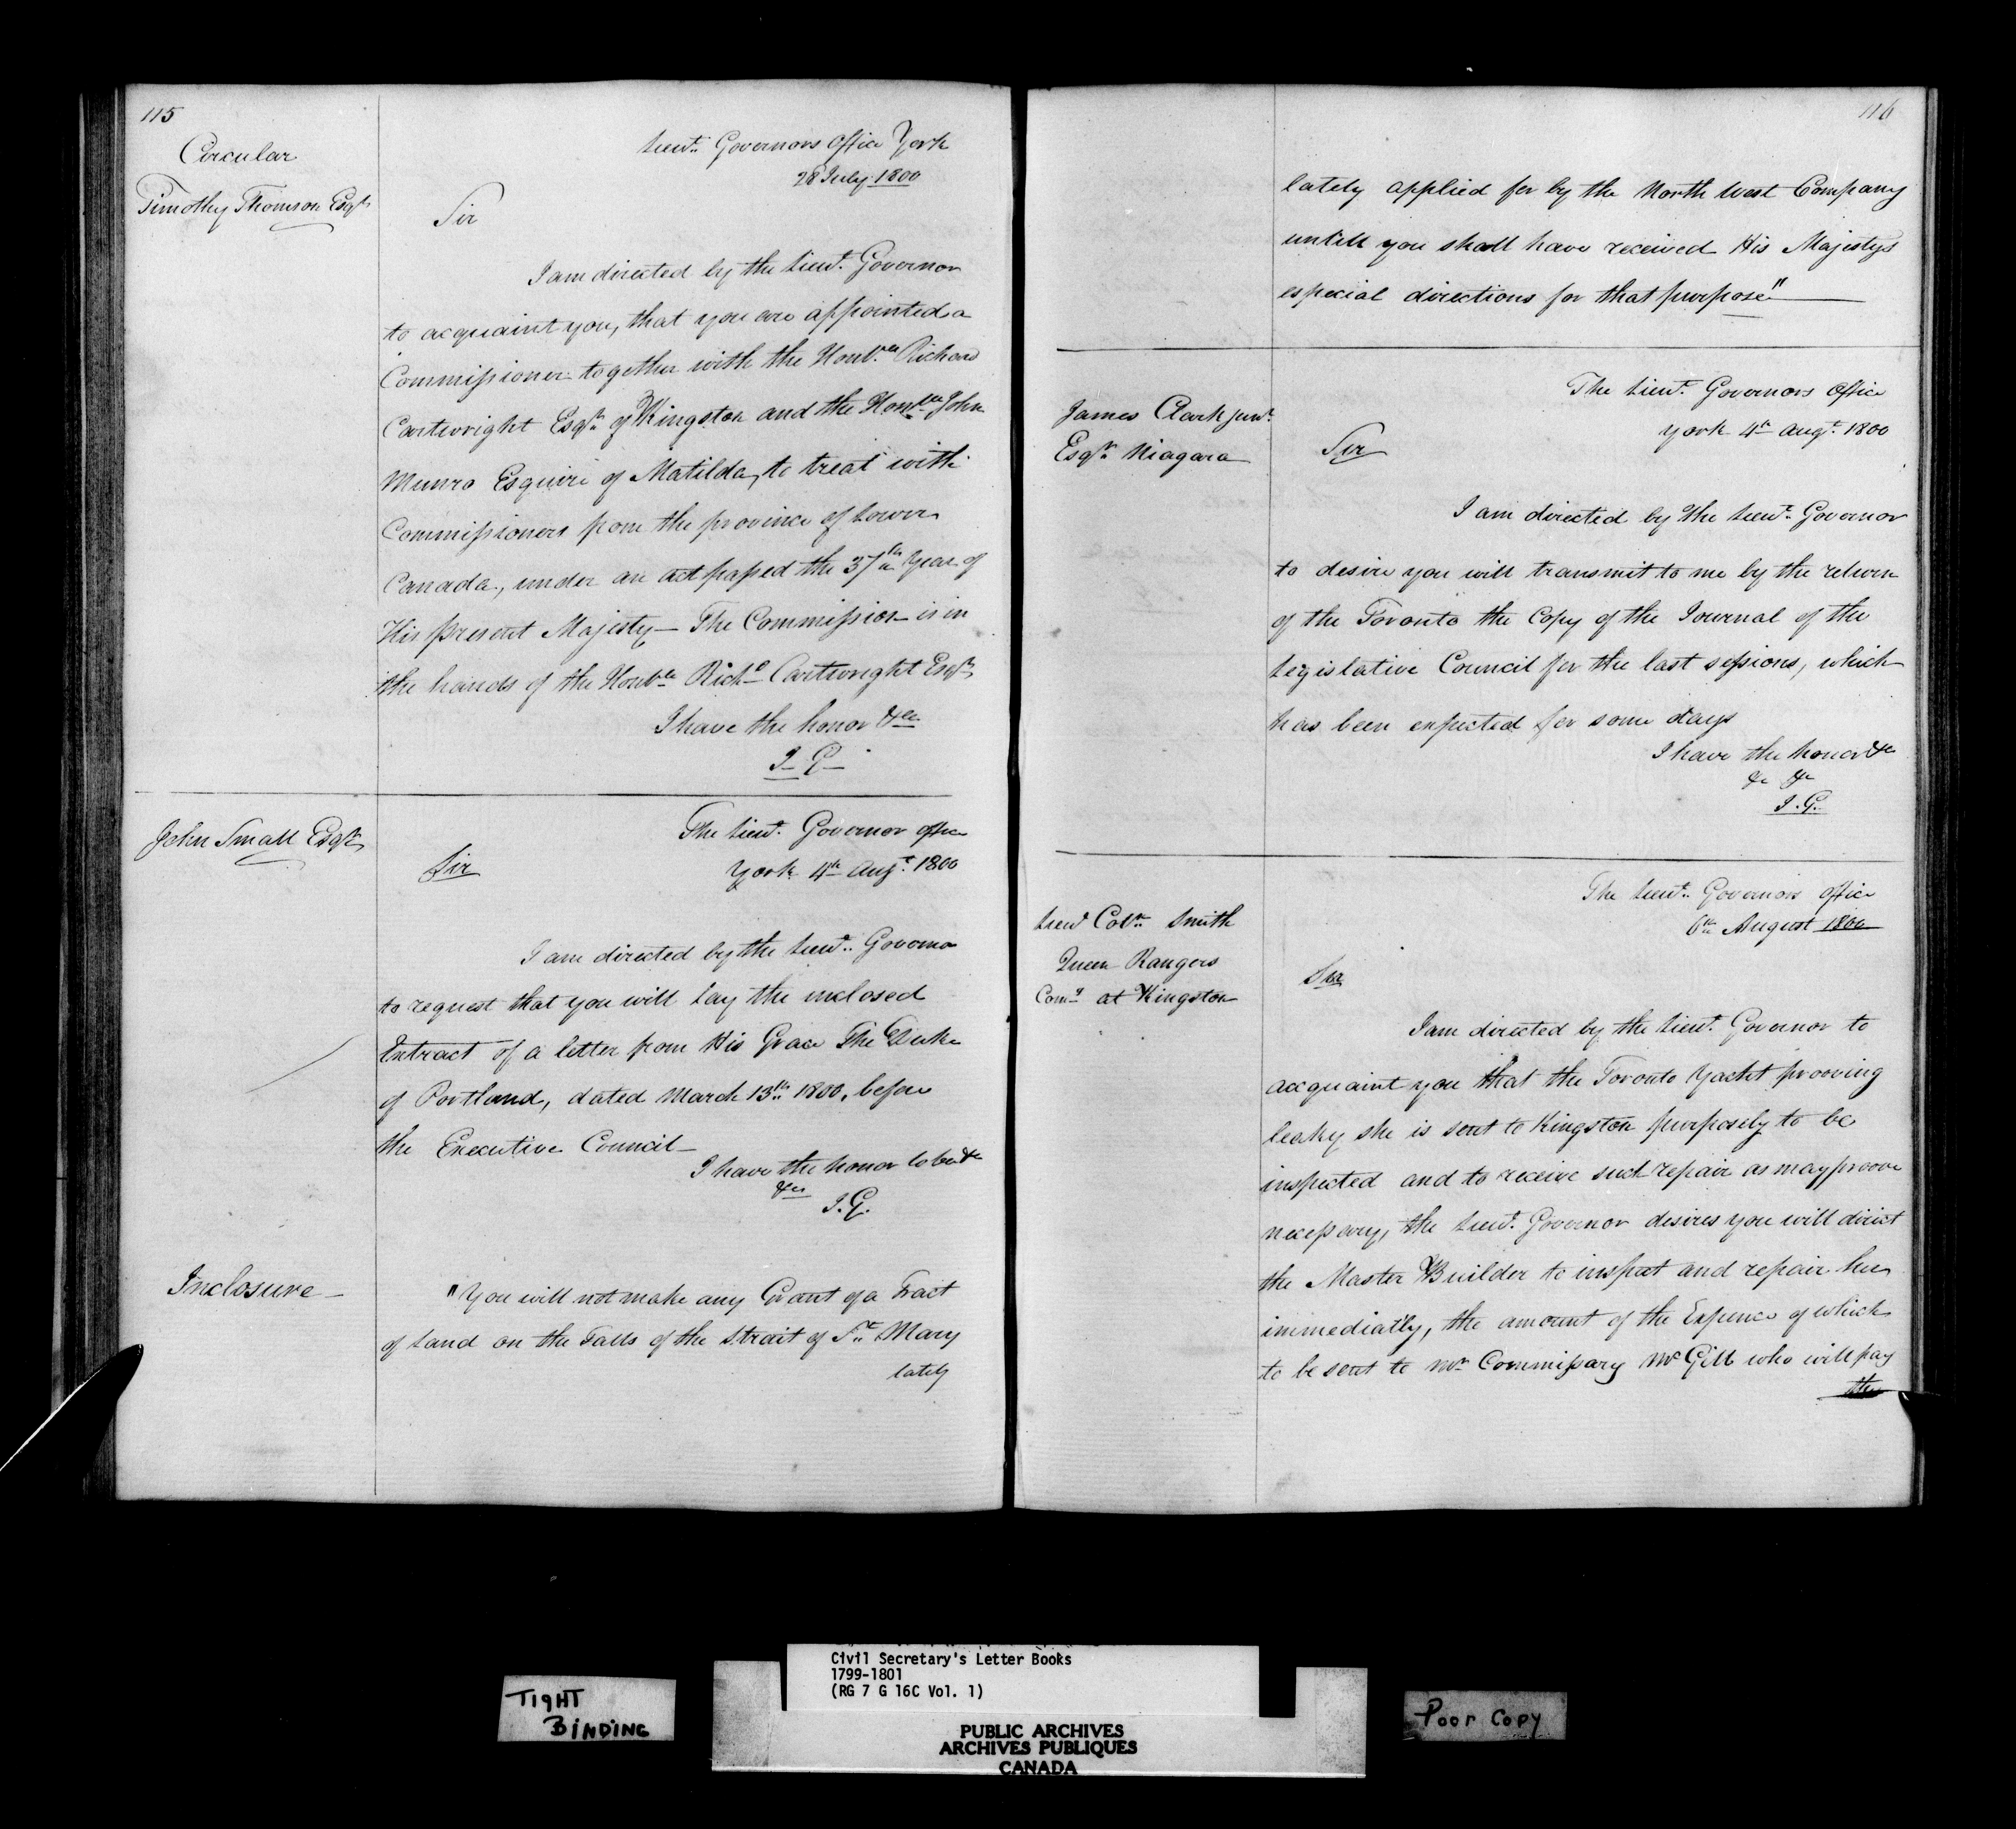 115
Circular
Timothy Thomson Esqr.
Lieut. Governors Office York
28 July 1800
Sir
I am directed by the Lieut. Governor
to acquaint you, that you are appointed a
Commissioner together with the Honble. Richard
Cartwright Esqr. of Kingston and the Honble. John
Munro Esquire of Matilda, to treat with
Commissioners from the province of Lower
Canada, under an act passed the 37th Year of
His present Majesty - The Commission is in
the hands of the Honble Richd Cartwright Esqr.
I have the honor &c
J- G-
John Small Esqr.
The Lieut. Governor office
York 4th Augt. 1800
Sir
I am directed by the Lieut. Governor
to request that you will Lay the inclosed
Extract of a letter from His Grace The Duke
of Portland, dated March 13th. 1800, before
the Executive Council-
I have the honor to be &c
&c
J.G.
Inclosure-
"You will not make any Grant of a Tract
of Land on the Falls of the Strait of St. Mary
lately
116
lately applied for by the North West Company
untill you shall have received His Majestys
especial directions for that purpose"
James Clark Junr.
Esqr. Niagara
The Lieut. Governors Office
York 4th Augt. 1800
Sir
I am directed by the Lieut. Governor
to desire you will transmit to me by the return
of the Toronto the Copy of the Journal of the
Legislative Council for the last sessions, which
has been expected for some days
I have the honor &c
&c &c
J.G.
Lieut Coln. Smith
Queen Rangers
Comg. at Kingston
The Lieut. Governors office
6th August 1800
Sir
I am directed by the Lieut. Governor to
acquaint you that the Toronto Yacht prooving
leaky she is sent to Kingston purposely to be
inspected and to receive such repair as may proove
necessary, the Lieut. Governor desires you will direct
the Master Builder to inspect and repair her
immediatly, the amount of the Expence of which
to be sent to Mr. Commissary McGill who will pay
the
Civil Secretary's Letter Books
1799-1801
(RG 7 G 16C Vol. 1)
TIGHT
BINDING
PUBLIC ARCHIVES
ARCHIVES PUBLIQUES
CANADA
Poor Copy